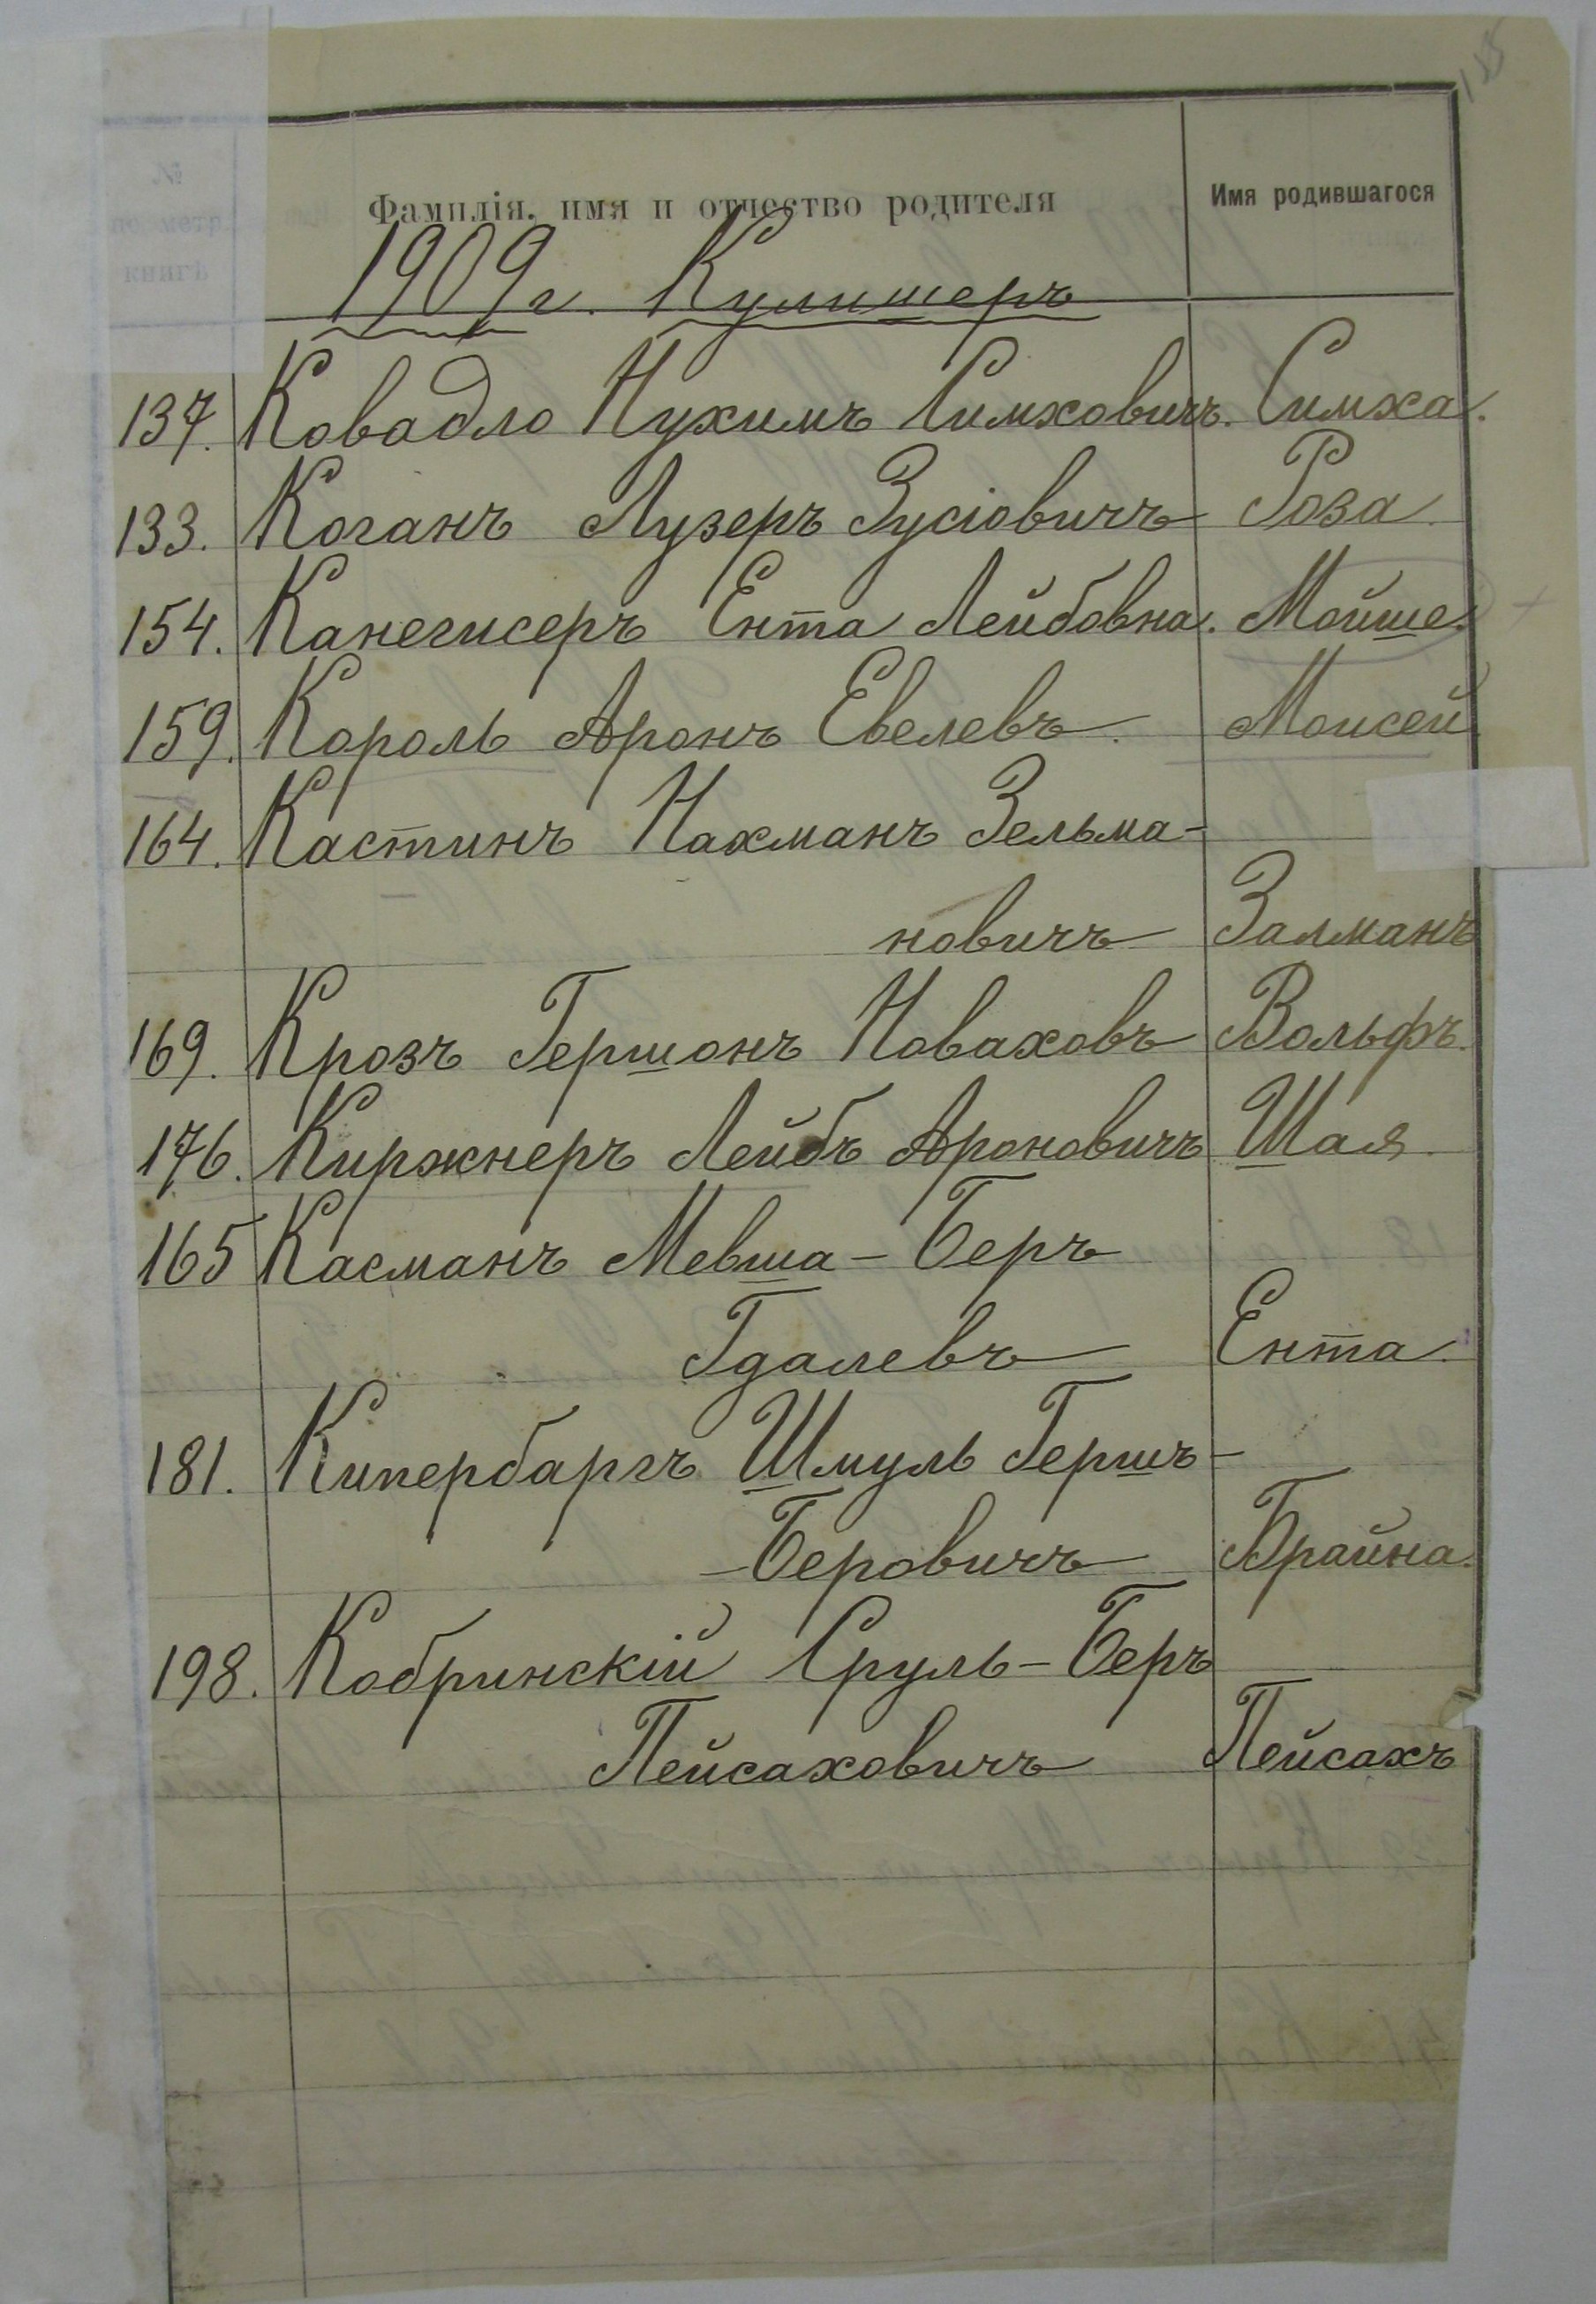 185
№
по метр.
книгѣ
Фамилія, имя и отчество родителя
Имя родившагося
1909 г. Кулишеръ
137. Ковадло Нухимъ Симховичъ. Симха.
133. Коганъ Лузеръ Зусіовичъ Роза.
154. Канегисеръ Ента Лейбовна. Мойше.
159. Король Аронъ Евелевъ. Моисей
164. Кастинъ Нахманъ Зельма-
новичъ Залманъ
169. Крозъ Гершонъ Новаховъ Вольфъ.
176. Киржнеръ Лейбъ Ароновичъ Шая.
165 Касманъ Мевша-Беръ
Гдалевъ Ента.
181. Кипербаргъ Шмуль Гершъ-
Беровичъ Брайна.
198. Кобринскій Сруль-Беръ
Пейсаховичъ Пейсахъ